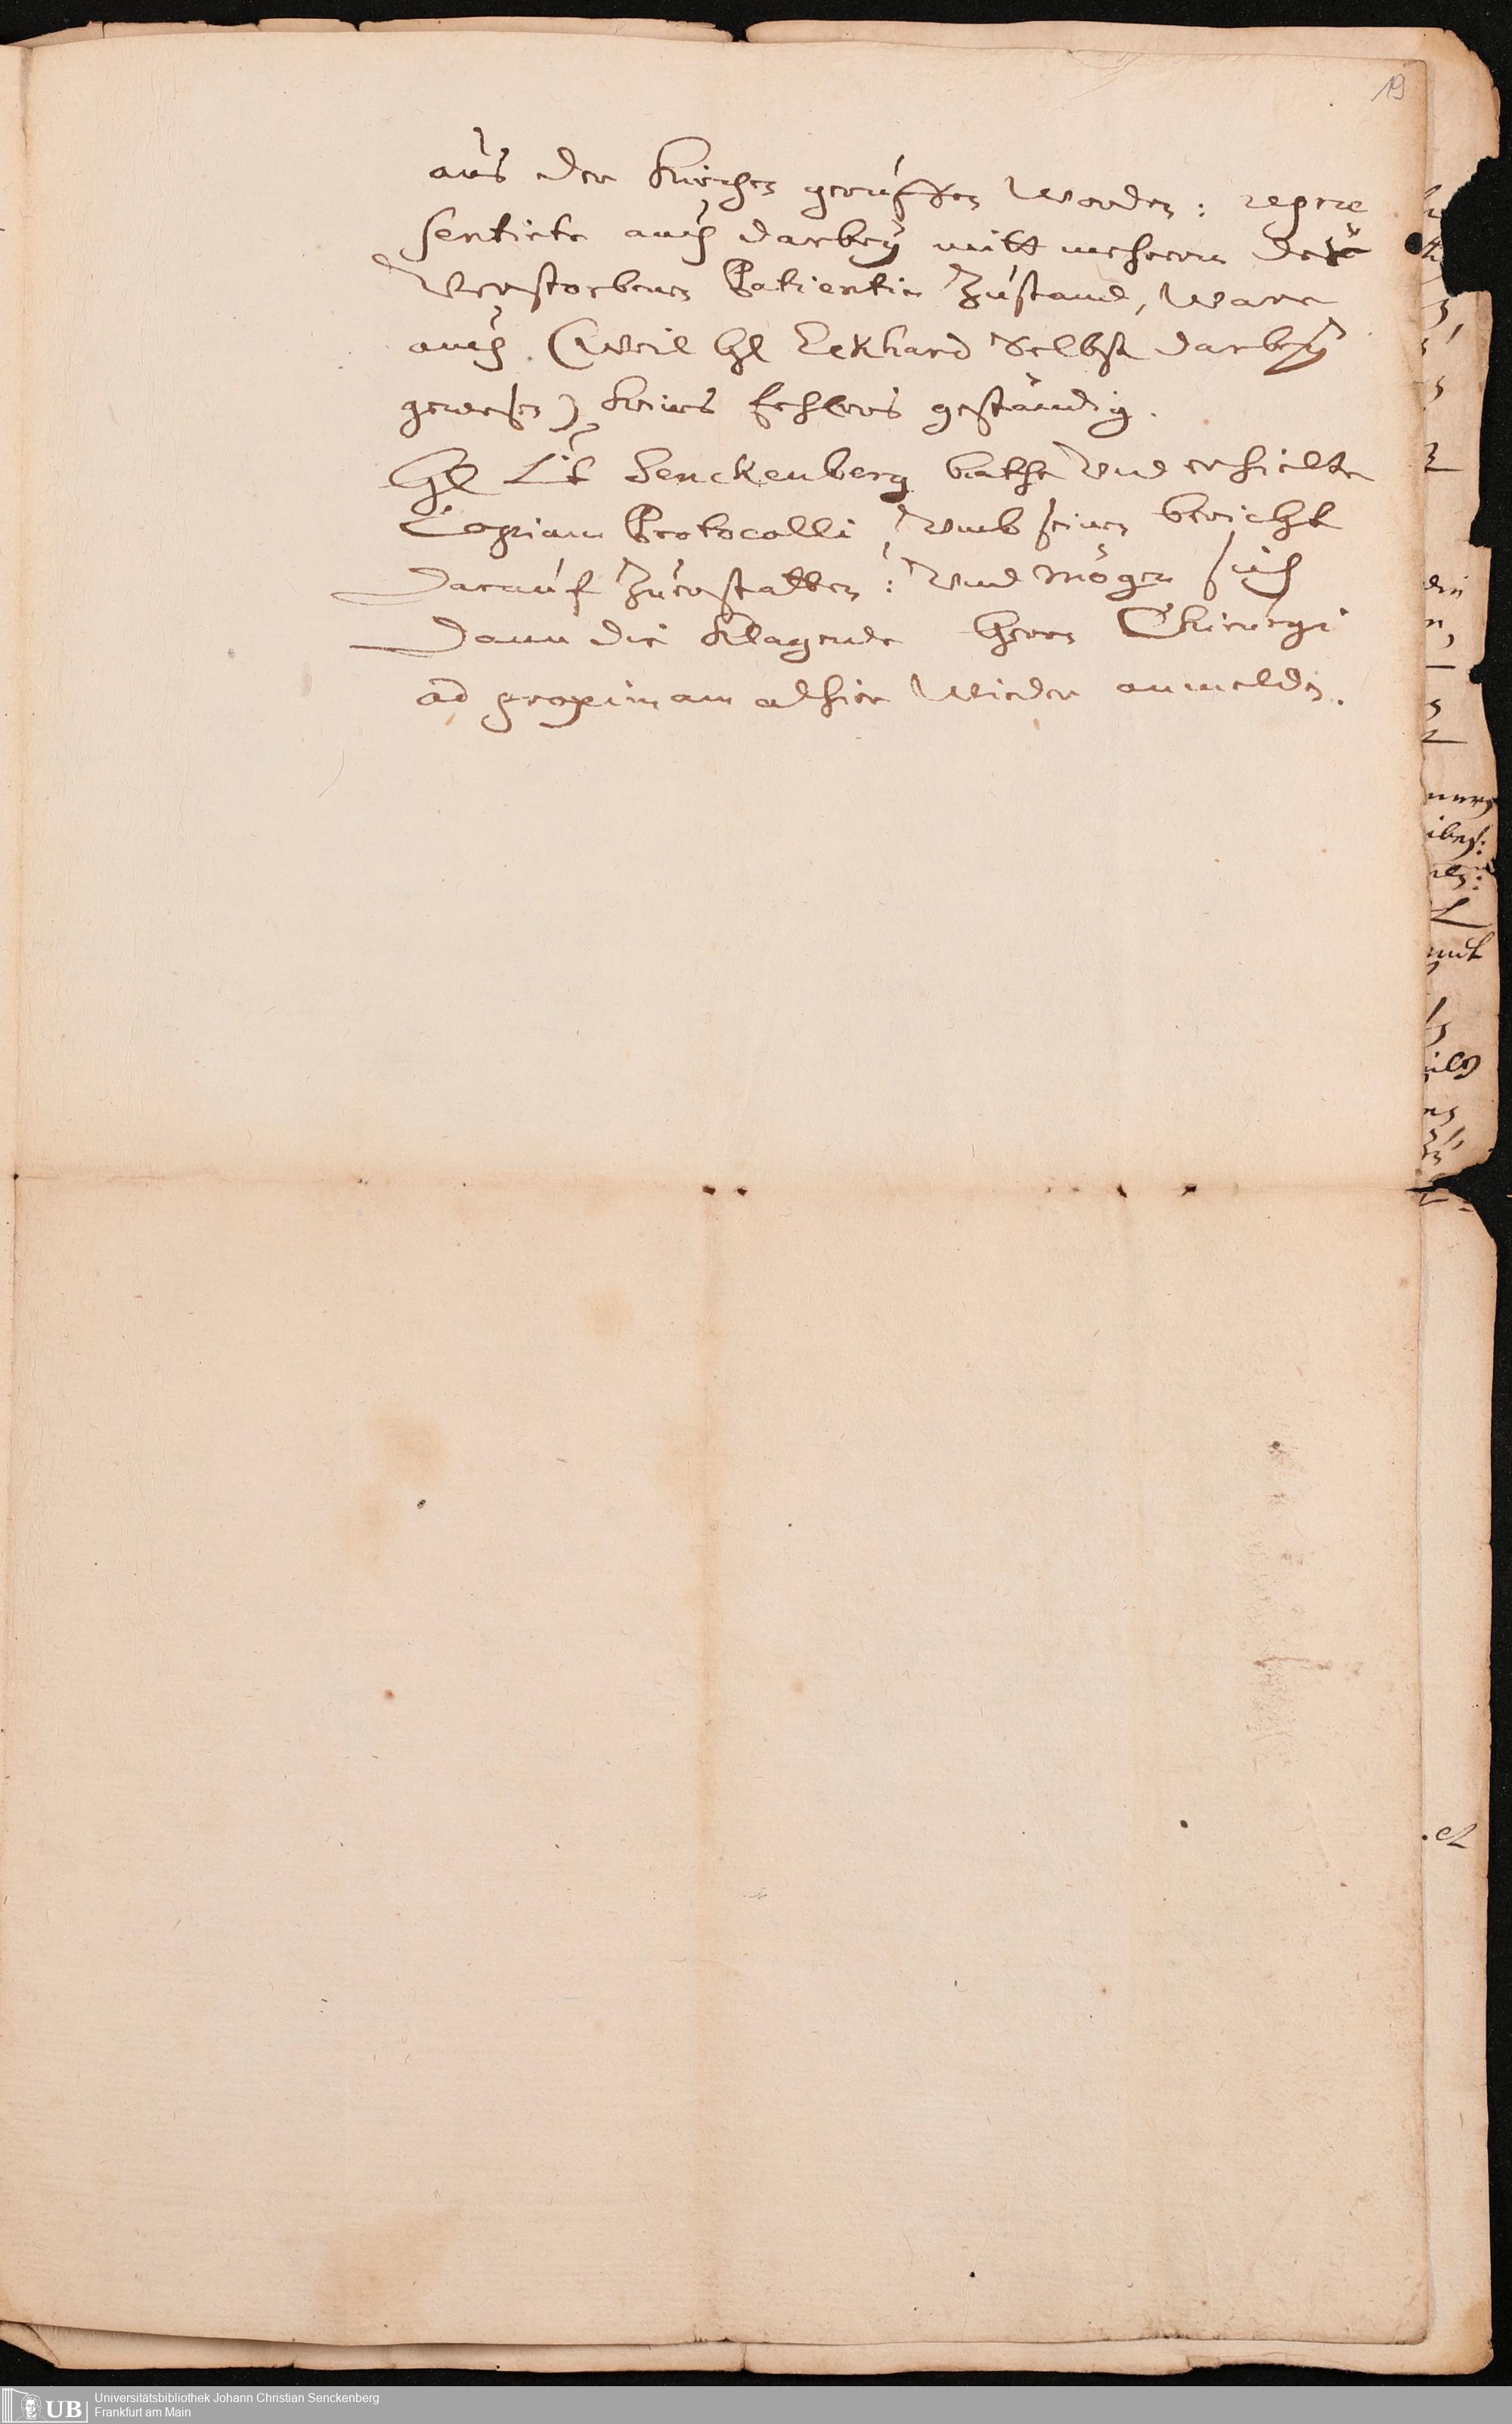 19
aus der Kirchen geruffen worden: repræ
sentirte auch darbey mitt mehrerm der
Verstorbenen Patientin Zustand, ware
auch (weil H Eckhard selbst darbey
gewesen) keines fehlers geständig.
H Lit Senckenberg bathe Vnd erhielte
Copiam Protocolli, Vmb seinen bericht
darauf Zuerstatten: Vnd mögen sich
dann die Klagende Herrn Chirurgi
ad proximam alhier Wieder anmelden.
UB
Universitätsbibliothek Johann Christian Senckenberg
Frankfurt am Main